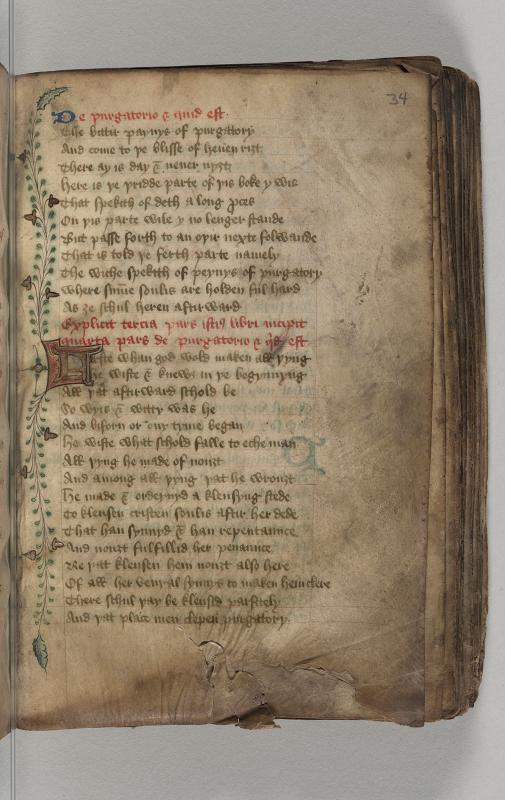 34
De purgatorio & quid est
The bittir paynys of purgatory
And come to ye blisse of heuen rizt
There ay is day & neuer nyzt
Here is ye yridde parte of yis boke y wis
That spekith of deth a long pces
On yis parte wile y no lenger stande
But passe forth to an oyir nexte folwande
That is told ye ferth parte namely
The wiche spekith of peynys of purgatory
Where sūme soulis are holden ful hard
As ze schul heren aftirward
Explicit tercia pars isti libri incipit
quarta pars de purgatorio & qd est
whan god wold maken all yyng
He wiste & knewe in ye begynnyng
All yat aftirward schold be
So wys & witty was he
And biforn or any tyme began
He wiste what schold falle to eche man
All yyng he made of nouzt
And among all yyng yat he wrouzt
He made & ordeynyd a klensyng stede
To klensen cristen soulis aftir her dede
That han synnyd & han repentaunce
And nouzt fulfillid her penaunce
Ne yat klensen hem nouzt also here
Of all her venyal synnys to maken hem clere
There schul yay be klensid parfitely
And yat place men clepen purgatory